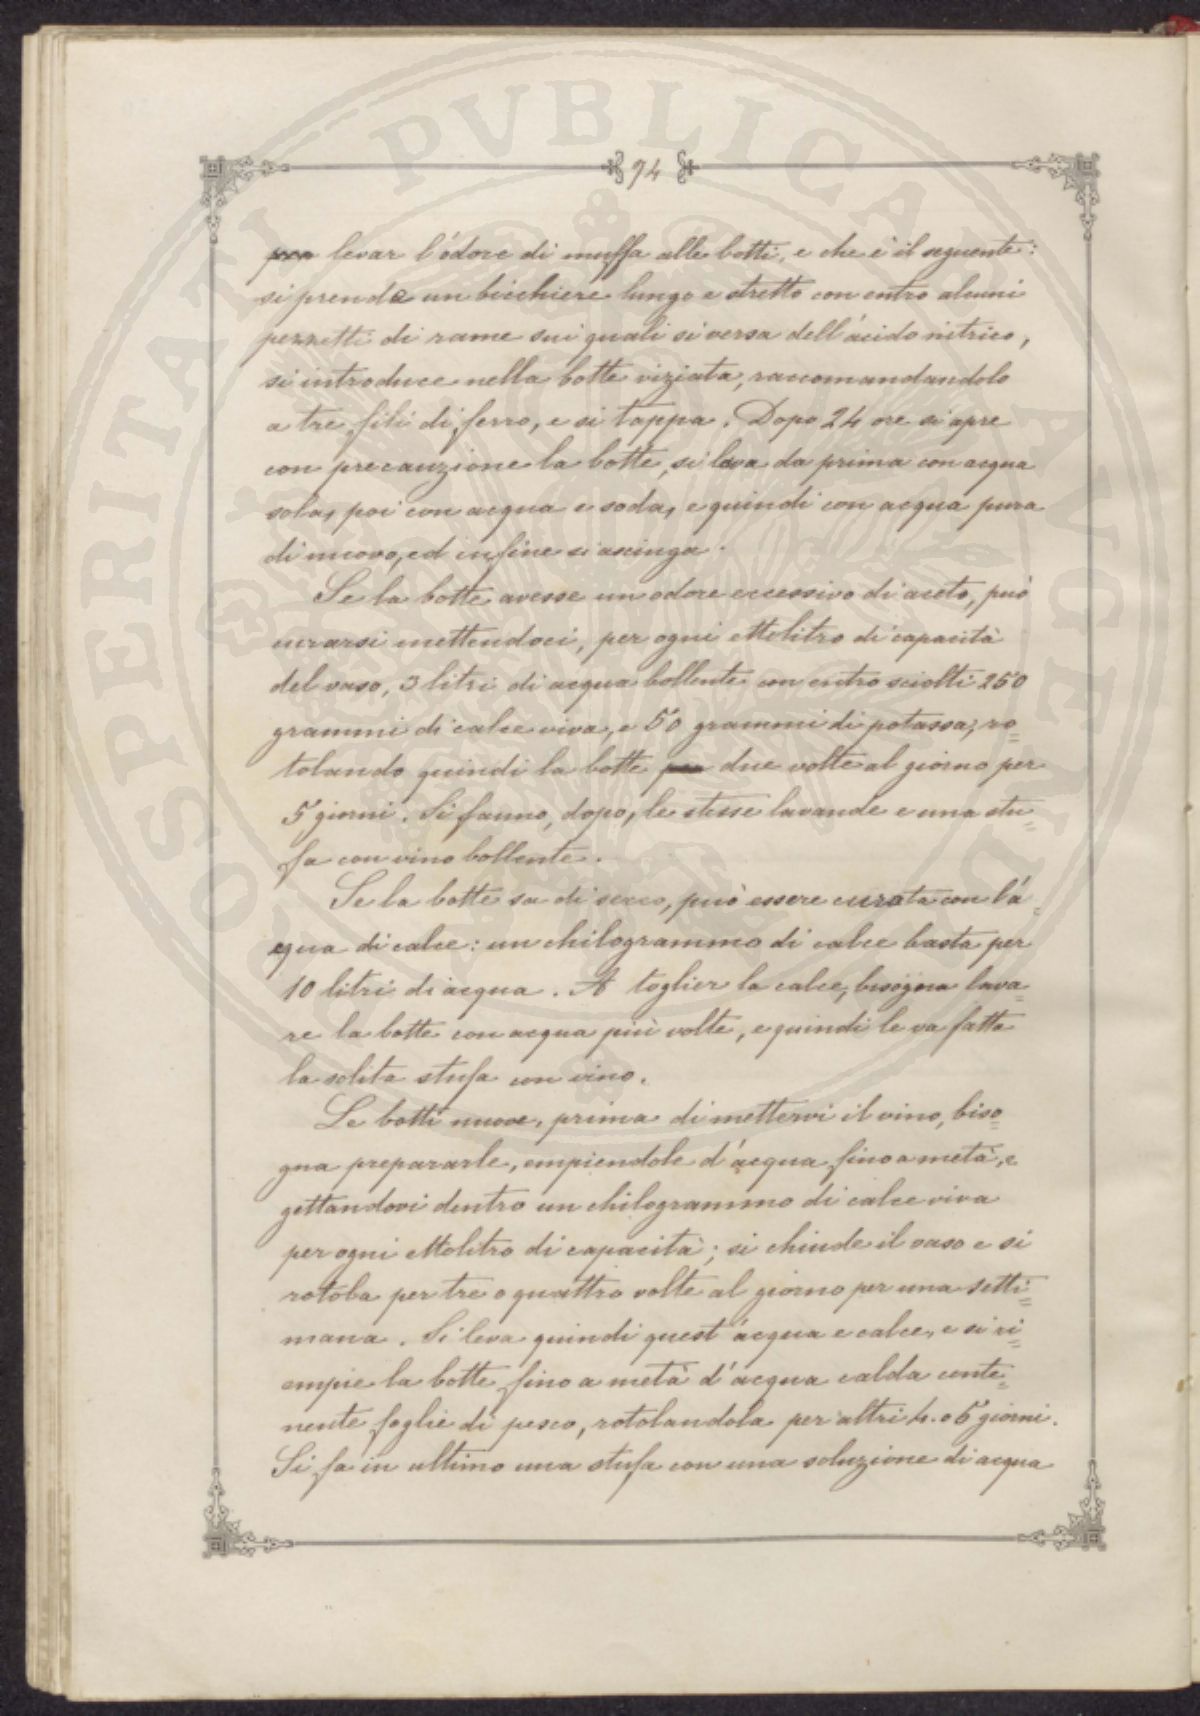 94
per levar l'odore di muffa alle botti, e che è il seguente:
si prende un bicchiere lungo e stretto con entro alcuni
pezzetti di rame sui quali si versa dell'acido nitrico,
si introduce nella botte viziata, raccomandandolo
a tre fili di ferro, e si tappa. Dopo 24 ore si apre
con precauzione la botte, si lava da prima con acqua
sola, poi con acqua e soda, e quindi con acqua pura
di nuovo, ed infine si asciuga.
Se la botte avesse un odore eccessivo di aceto, può
curarsi mettendoci, per ogni ettolitro di capacità
del vaso, 3 litri di acqua bollente con entro sciolti 250
grammi di calce viva, e 50 grammi di potassa, ro=
tolando quindi la botte per due volte al giorno per
5 giorni. Si fanno, dopo, le stesse lavande e una stu=
fa con vino bollente.
Se la botte sa di secco, può essere curata con l'a=
cqua di calce: un chilogrammo di calce basta per
10 litri di acqua. A toglier la calce, bisogna lava=
re la botte con acqua più volte, e quindi le va fatta
la solita stufa con vino.
Le botti nuove, prima di mettervi il vino, biso=
gna prepararle, empiendole d'acqua fino a metà, e
gettandovi dentro un chilogrammo di calce viva
per ogni ettolitro di capacità; si chiude il vaso e si
rotola per tre o quattro volte al giorno per una setti=
mana. Si leva quindi quest'acqua e calce, e si ri=
empie la botte fino a metà d'acqua calda conte=
nente foglie di pesco, rotolandola per altri 4 o 5 giorni.
Si fa in ultimo una stufa con una soluzione di acqua